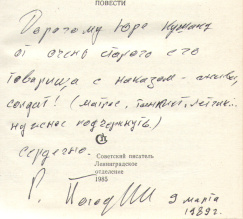 ПОВЕСТИ
Дорогому Юре Кушаку
от очень старого его
товарища с наказом –
солдат! (матрос, танкист, летчик..
нужное подчеркнуть)
Сердечно.
Советский писатель
Ленинградское
отделение
1985
Р. Погодин
9 марта
1989 г.